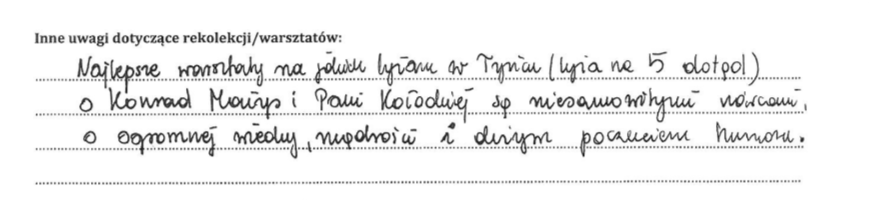 Inne uwagi dotyczące rekolekcji/warsztatów:
Najlepsze warsztaty na jakich byłam w Tyńcu (byłam na 5 dotpol)
o Konrad Małys i Pani Kołodziej są niesamowitymi mówcami,
o ogromnej wiedzy, mądrości i dużym poczuciem humoru.